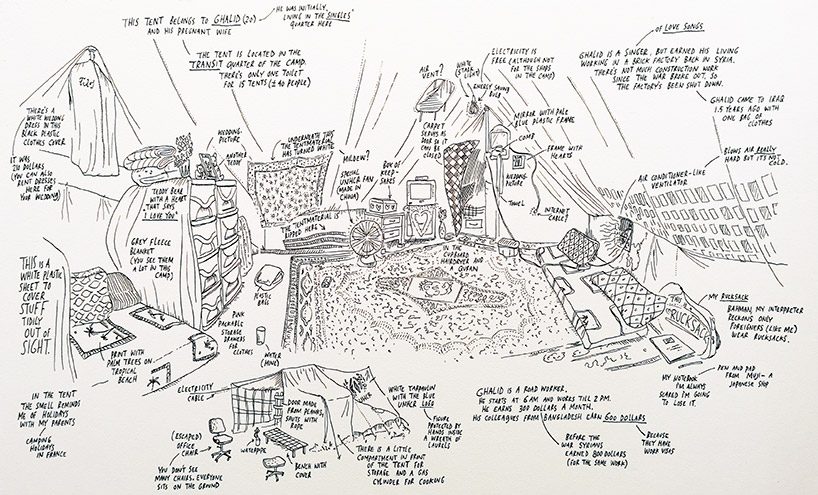 THIS TENT BELONGS TO GHALID (20)
AND HIS PREGNANT WIFE
HE WAS INITIALLY
LIVING IN THE SINGLES'
QUARTER HERE
THE TENT IS LOCATED IN THE
TRANSIT QUARTER OF THE CAMP.
THERE'S ONLY ONE TOILET
FOR 15 TENTS (± 40 PEOPLE)
OF LOVE SONGS
GHALID IS A SINGER, BUT EARNED HIS LIVING
WORKING IN A BRICK FACTORY BACK IN SYRIA.
THERE'S NOT MUCH CONSTRUCTION WORK
SINCE THE WAR BROKE OUT, SO
THE FACTORY'S BEEN SHUT DOWN.
GHALID CAME TO IRAQ
1.5 YEARS AGO WITH
ONE BAG OF
CLOTHES
ELECTRICITY IS
FREE (ALTHOUGH NOT
FOR THE SHOPS
IN THE CAMP)
AIR
VENT?
WHITE
(STARK
LIGHT)
ENERGY SAVING
BULB
MIRROR WITH PALE
BLUE PLASTIC FRAME
COMB
FRAME WITH
HEARTS
WEDDING-
PICTURE
TOWEL
INTERNET
CABLE?
BLOWS AIR REALLY
HARD BUT IT'S NOT
COLD.
AIR CONDITIONER-LIKE
VENTILATOR
THERE'S A
WHITE WEDDING
DRESS IN THIS
BLACK PLASTIC
CLOTHES COVER
IT WAS
210 DOLLARS
(YOU CAN ALSO
RENT DRESSES
HERE FOR
YOUR WEDDING)
WEDDING-
PICTURE
ANOTHER
TEDDY
UNDERNEATH THIS
THE TENTMATERIAL
HAS TURNED WHITE
MILDEW?
SPECIAL
UNHCR FAN
(MADE IN
CHINA)
BOX OF
KEEP-
SAKES
CARPET
SERVES AS
DOOR SO IT CAN
BE CLOSED
TEDDY BEAR
WITH A HEART
THAT SAYS
"I LOVE YOU"
GREY FLEECE
BLANKET
(YOU SEE THEM
A LOT IN THIS
CAMP)
THE TENTMATERIAL IS
RIPPED HERE
IN THE
CUPBOARD
HAIRDRYER AND
A QURAN
THIS IS A
WHITE PLASTIC
SHEET TO
COVER
STUFF
TIDILY
OUT OF
SIGHT.
PLASTIC
BALL
PINK
PACKABLE
STORAGE
DRAWERS
FOR
CLOTHES
WATER
(MINE)
PRINT WITH
PALM TREES ON
TROPICAL
BEACH
THIS
RUCKSACK
MY RUCKSACK
BAHMAN, MY INTERPRETER
RECKONS ONLY
FOREIGNERS (LIKE ME)
WEAR RUCKSACKS.
PEN AND PAD
FROM MUJI – A
JAPANESE SHOP
MY NOTEBOOK
I'M ALWAYS
SCARED I'M GOING
TO LOSE IT.
IN THE TENT
THE SMELL REMINDS
ME OF HOLIDAYS
WITH MY PARENTS
CAMPING
HOLIDAYS
IN FRANCE
ELECTRICITY
CABLE
DOOR MADE
FROM PLANKS,
SHUTS WITH
ROPE
WHITE TARPAULIN
WITH THE BLUE
UNHCR LOGO
FIGURE
PROTECTED BY
HANDS INSIDE
A WREATH OF
LAURELS
(ESCAPED)
OFFICE
CHAIR
WATERPIPE
BENCH WITH
COVER
YOU DON'T SEE
MANY CHAIRS. EVERYONE
SITS ON THE GROUND
THERE IS A LITTLE
COMPARTMENT IN FRONT
OF THE TENT FOR
STORAGE AND A GAS
CYLINDER FOR COOKING
GHALID IS A ROAD WORKER,
HE STARTS AT 6 AM AND WORKS TILL 2 PM.
HE EARNS 300 DOLLARS A MONTH.
HIS COLLEAGUES FROM BANGLADESH EARN 600 DOLLARS
BEFORE THE
WAR SYRIANS
EARNED 800 DOLLARS
(FOR THE SAME WORK)
BECAUSE
THEY HAVE
WORK VISAS